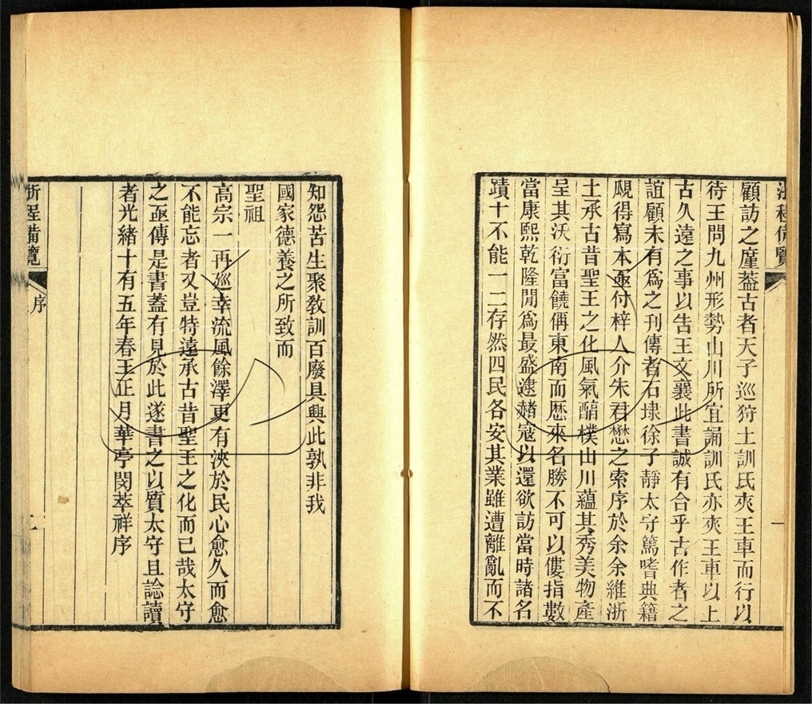 顧訪之塵葢古者天子巡狩土訓氏夾王車而行以
待王問九州形勢山川所宜誦訓氏亦夾王車以上
古久遠之事以告王文襄此書誠有合乎古作者之
誼顧未有爲之刊傳者石埭徐子靜太守篤嗜典籍
覗得寫本亟付梓人介朱君懋之索序於余余維浙
土承古昔聖王之化風氣醕樸山川蘊其秀美物產
呈其沃衍富饒偁東南而歷來名勝不可以僂指數
當康熙乾隆閒爲最盛逮赭寇以還欲訪當時諸名
蹟十不能一二存然四民各安其業雖遭離亂而不
知怨苦生聚教訓百廢具興此孰非我
國家德養之所致而
聖祖
高宗一再巡幸流風餘澤更有浹於民心愈久而愈
不能忘者又豈特遠承古昔聖王之化而已哉太守
之亟傳是書蓋有見於此遂書之以質太守且諗讀
者光緒十有五年春王正月華亭閔萃祥序
浙程備覽
序
二